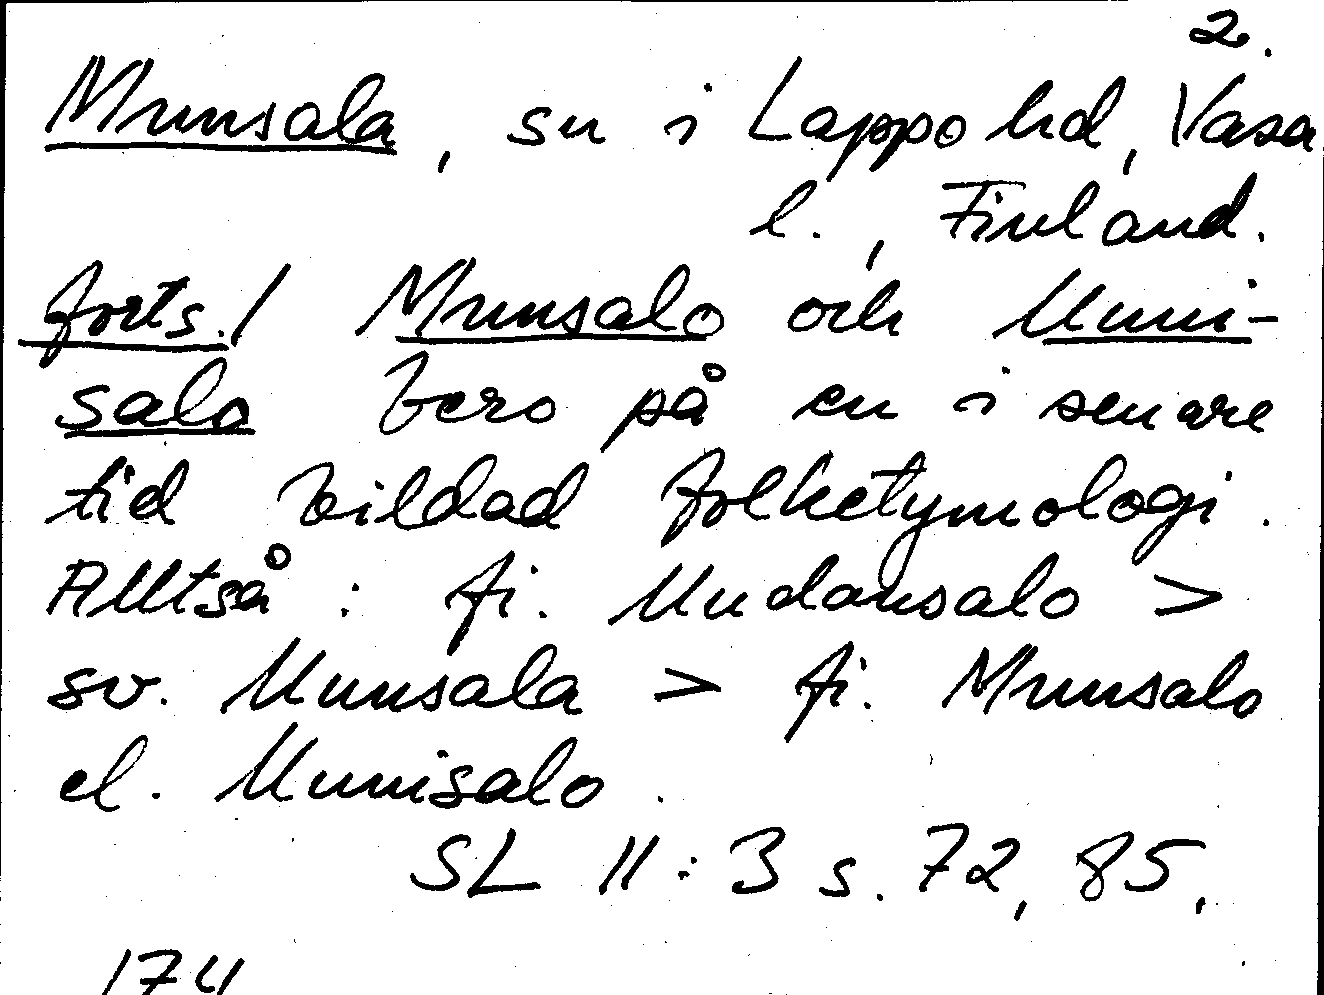 2.
Munsala, sn i Lappo hd, Vasa
l., Finland.
forts./ Munsalo och Muni-
salo bero på en i senare
tid bildad folketymologi.
Alltså: fi. Mudansalo >
sv. Munsala > fi. Munsalo
el. Munisalo.
SL II:3 s. 72, 85,
174